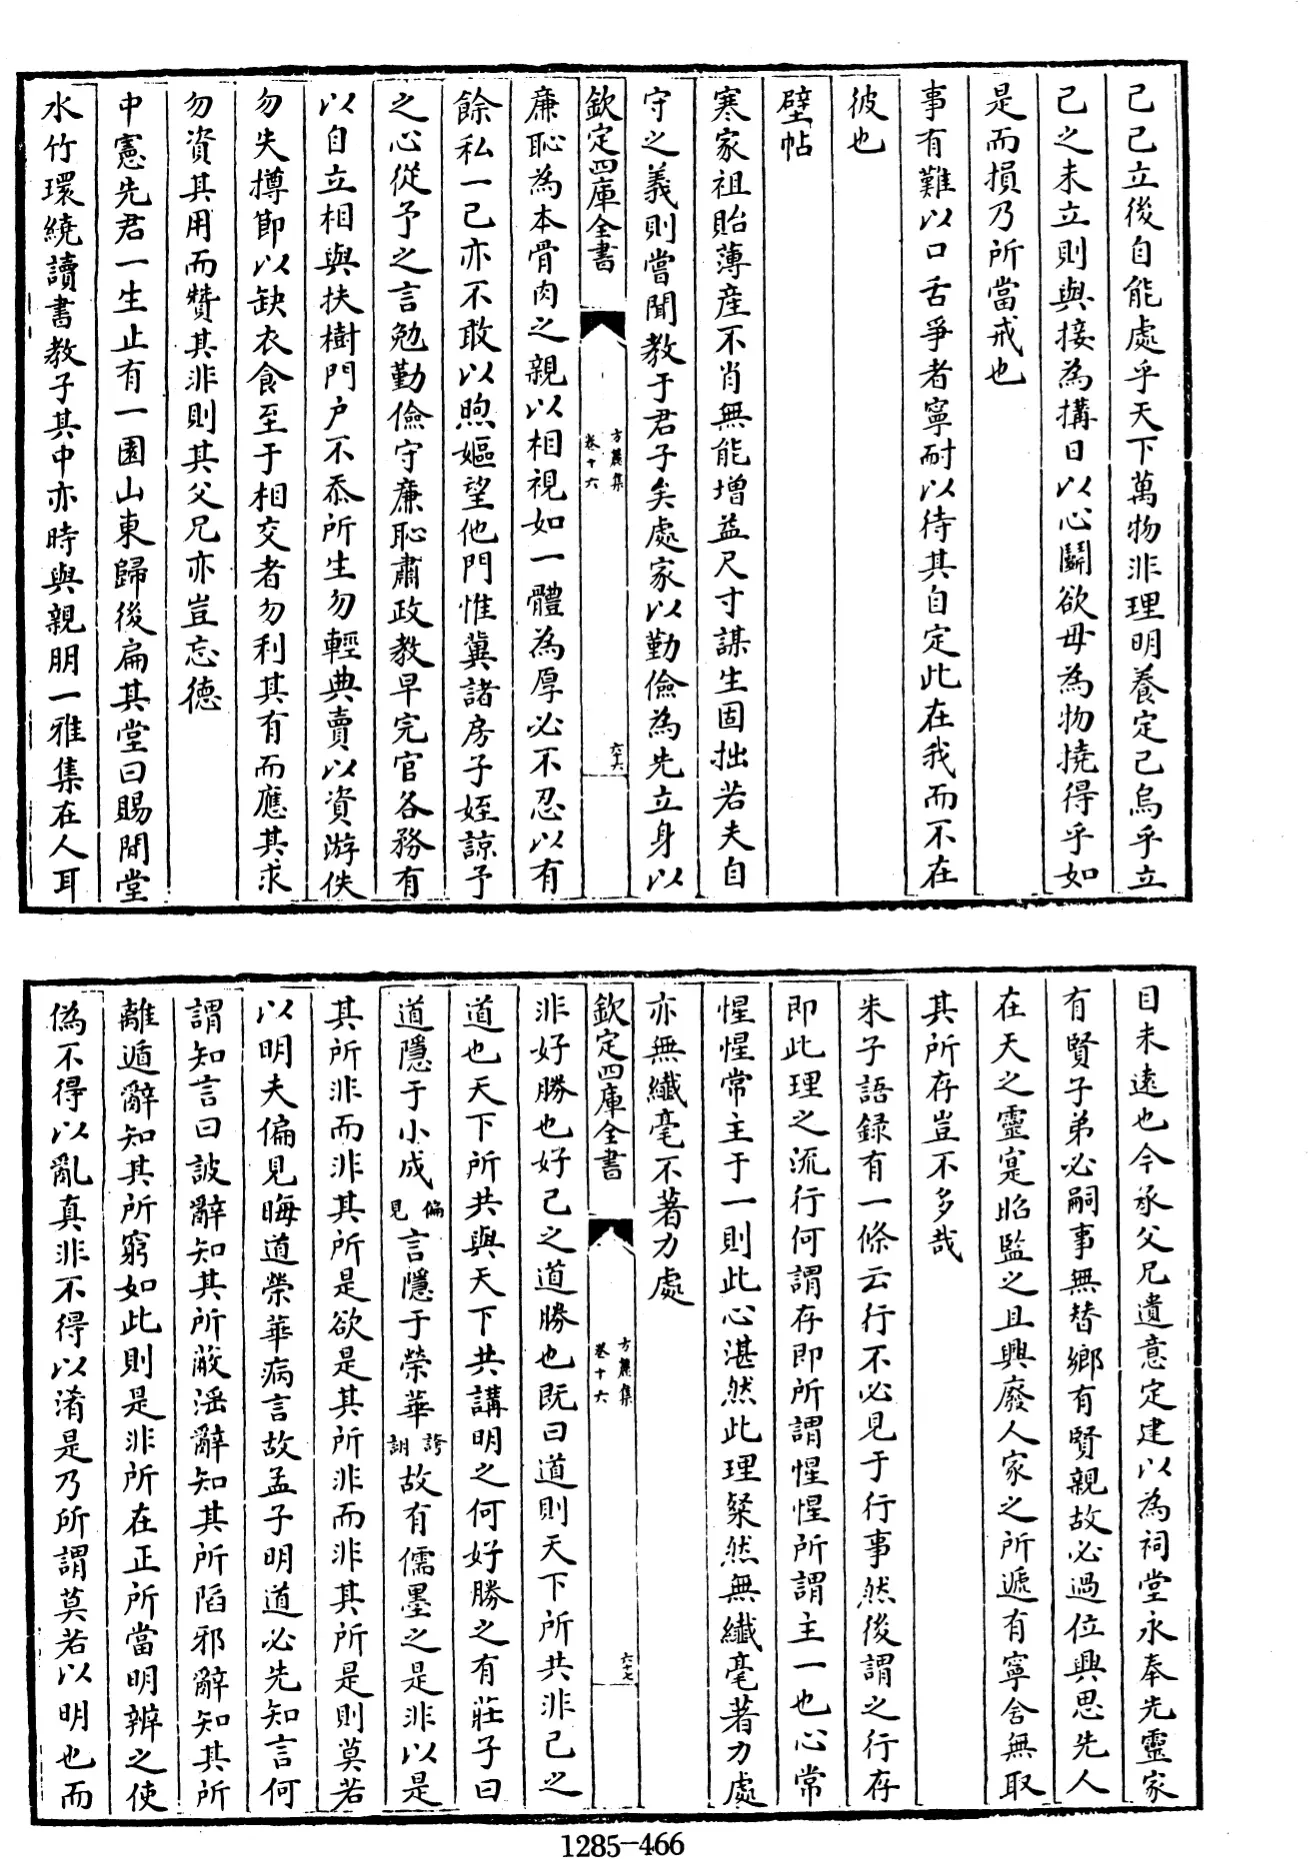 己己立後自能處乎天下萬物非理明養定己烏乎立
己之未立則與接為搆日以心鬭欲毋為物撓得乎如
是而損乃所當戒也
事有難以口舌爭者寧耐以待其自定此在我而不在
彼也
壁帖
寒家祖貽薄産不肖無能增益尺寸謀生固拙若夫自
守之義則嘗聞教于君子矣處家以勤儉為先立身以
欽定四庫全書
方麓集
卷十六
六十六
廉恥為本骨肉之親以相視如一體為厚必不忍以有
餘私一己亦不敢以煦嫗望他門惟冀諸房子姪諒予
之心從予之言勉勤儉守廉恥肅政教早完官各務有
以自立相與扶樹門户不忝所生勿輕典賣以資游佚
勿失撙節以缺衣食至于相交者勿利其有而應其求
勿資其用而贊其非則其父兄亦豈忘德
中憲先君一生止有一園山東歸後扁其堂曰賜閒堂
水竹環繞讀書教子其中亦時與親朋一雅集在人耳
目未遠也今承父兄遺意定建以為祠堂永奉先靈家
有賢子弟必嗣事無替鄉有賢親故必過位興思先人
在天之靈寔昭監之且興廢人家之所遞有寧舍無取
其所存豈不多哉
朱子語録有一條云行不必見于行事然後謂之行存
即此理之流行何謂存即所謂惺惺所謂主一也心常
惺惺常主于一則此心湛然此理粲然無纎毫著力處
亦無纎毫不著力處
欽定四庫全書
方麓集
卷十六
六十七
非好勝也好己之道勝也既曰道則天下所共非己之
道也天下所共與天下共講明之何好勝之有莊子曰
道隱于小成偏見言隱于榮華誇詡故有儒墨之是非以是
其所非而非其所是欲是其所非而非其所是則莫若
以明夫偏見晦道榮華病言故孟子明道必先知言何
謂知言曰詖辭知其所蔽滛辭知其所陷邪辭知其所
離遁辭知其所窮如此則是非所在正所當明辨之使
偽不得以亂真非不得以淆是乃所謂莫若以明也而
1285-466